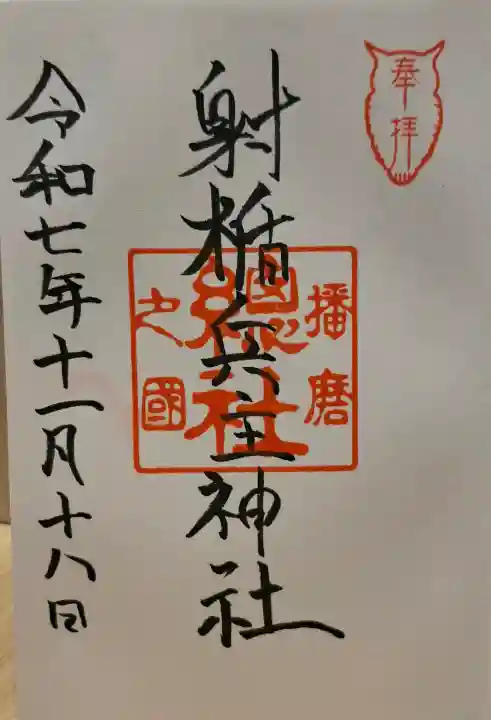 奉拝
播磨
總社
之國
射楯兵主神社
令和七年十一月十八日